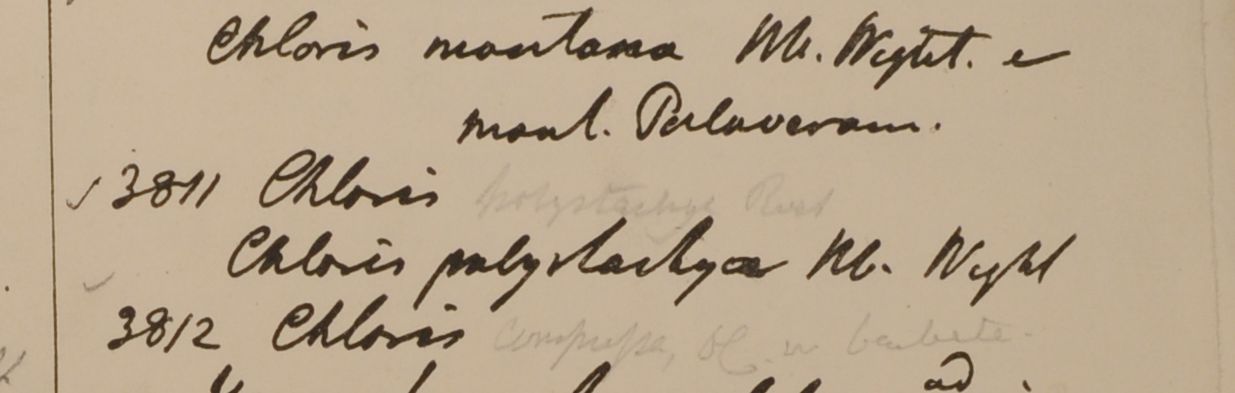 Chloris montana Hb. Wight. e
mont. Palaveram.
3811 Chloris polystachya Roxb
Chloris polystachya Hb. Wight
3812 Chloris compressa, DC.
ad